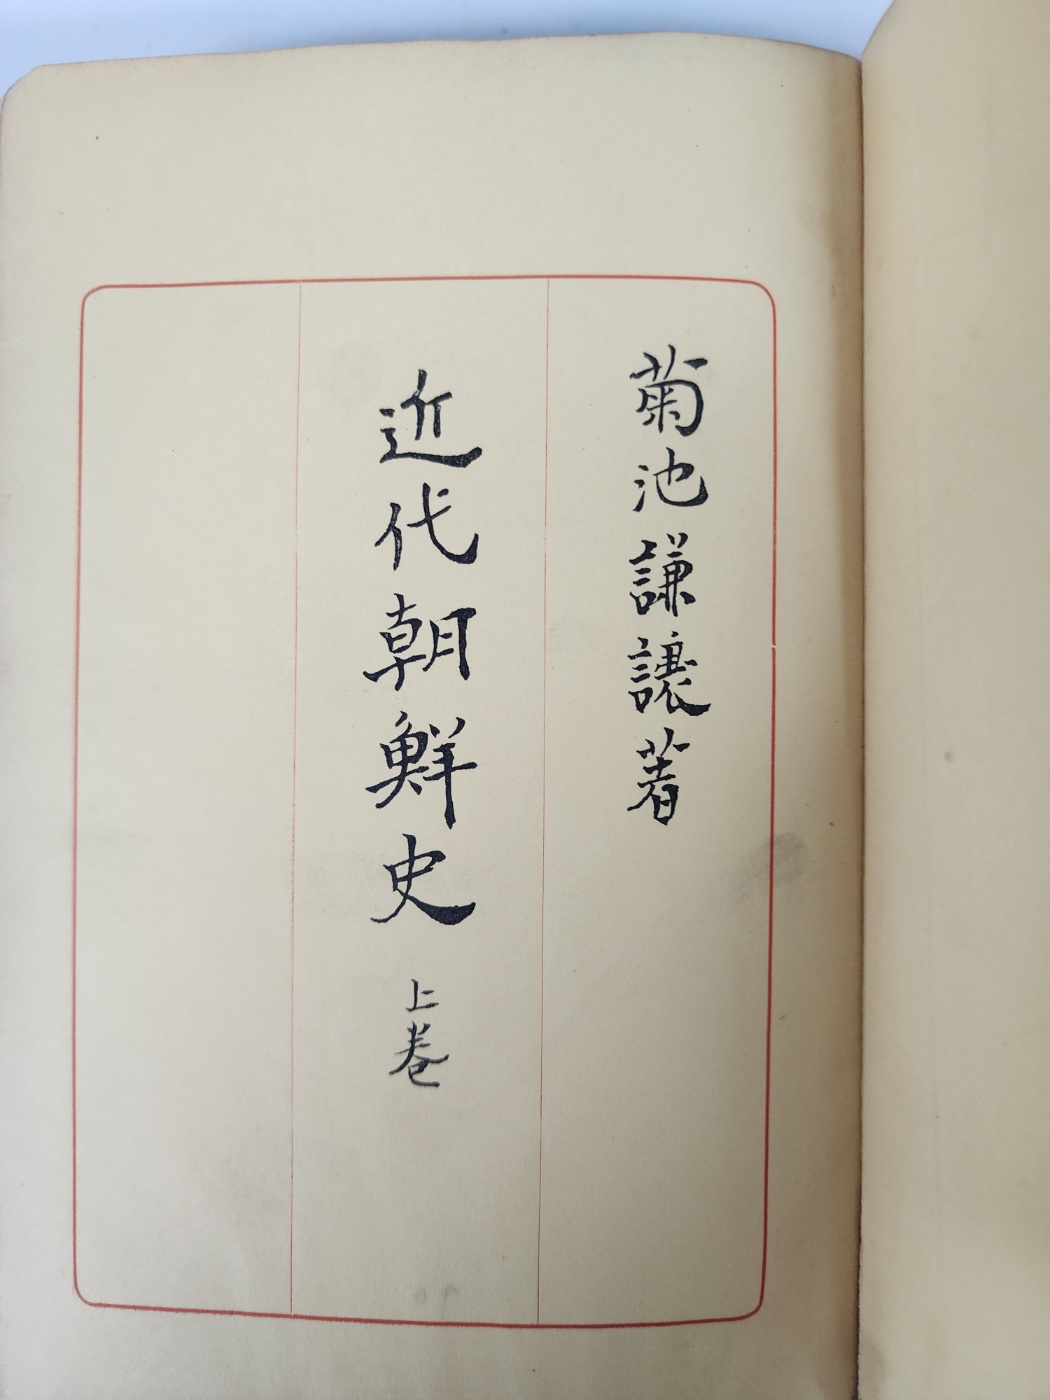 菊池謙譲著
近代朝鮮史 上巻